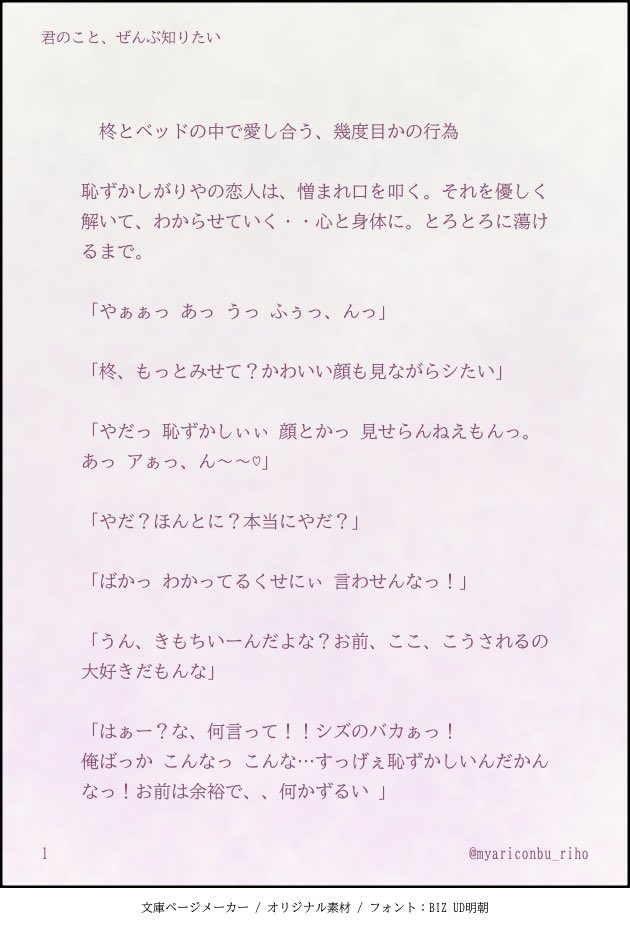 君のこと、ぜんぶ知りたい
柊とベッドの中で愛し合う、幾度目かの行為
恥ずかしがりやの恋人は、憎まれ口を叩く。それを優しく
解いて、わからせていく・・心と身体に。とろとろに蕩け
るまで。
「やぁぁっ あっ うっ ふぅっ、んっ」
「柊、もっとみせて？かわいい顔も見ながらシたい」
「やだっ 恥ずかしぃぃ 顔とかっ 見せらんねえもんっ。
あっ アぁっ、ん～～♡」
「やだ？ほんとに？本当にやだ？」
「ばかっ わかってるくせにぃ 言わせんなっ！」
「うん、きもちいーんだよな？お前、ここ、こうされるの
大好きだもんな」
「はぁー？な、何言って！！シズのバカぁっ！
俺ばっか こんなっ こんな…すっげぇ恥ずかしいんだかん
なっ！お前は余裕で、、何かずるい 」
1
@myariconbu_riho
文庫ページメーカー / オリジナル素材 / フォント：BIZ UD明朝